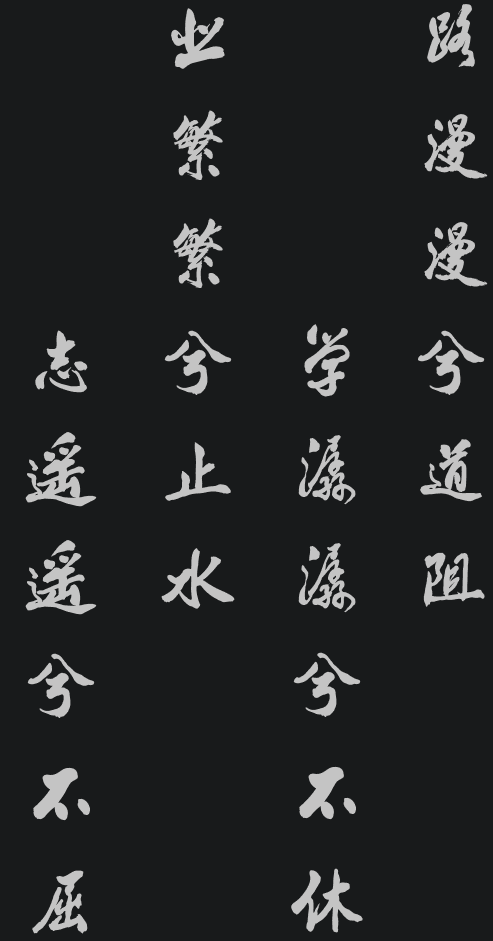 路漫漫兮道阻
学潺潺兮不休
业繁繁兮止水
志遥遥兮不屈